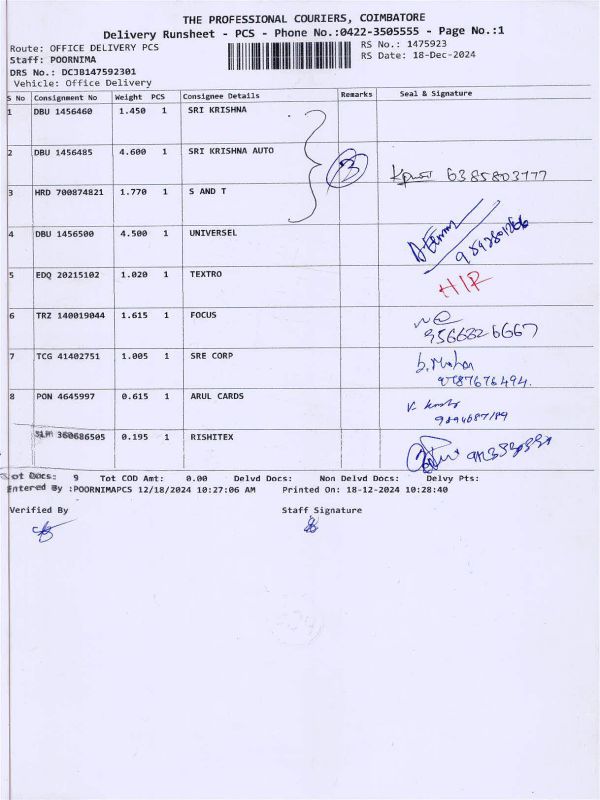 THE PROFESSIONAL COURIERS, COIMBATORE
Delivery Runsheet - PCS - Phone No.:0422-3505555 - Page No.:1
Route: OFFICE DELIVERY PCS RS No.: 1475923
Staff: POORNIMA RS Date: 18-Dec-2024
DRS No.: DCJB147592301
Vehicle: Office Delivery
S No Consignment No Weight PCS Consignee Details Remarks Seal & Signature
1 DBU 1456460 1.450 1 SRI KRISHNA
2 DBU 1456485 4.600 1 SRI KRISHNA AUTO 3 6385803777
3 HRD 700874821 1.770 1 S AND T
4 DBU 1456500 4.500 1 UNIVERSEL
5 EDQ 20215102 1.020 1 TEXTRO H/R
6 TRZ 140019044 1.615 1 FOCUS 9566626667
7 TCG 41402751 1.005 1 SRE CORP 9787676494.
8 PON 4645997 0.615 1 ARUL CARDS
360686505 0.195 1 RISHITEX
Tot Docs: 9 Tot COD Amt: 0.00 Delvd Docs: Non Delvd Docs: Delvy Pts:
Entered By :POORNIMAPCS 12/18/2024 10:27:06 AM Printed On: 18-12-2024 10:28:40
Verified By Staff Signature